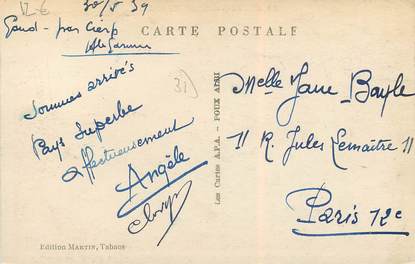 12 €
30/8 39
Gaud - par Cierp
Hte Garonne
CARTE POSTALE
Sommes arrivés
Pays Superbe
affectueusement
Angèle
31)
Les Cartes A.P.A. - POUX ALBI
Melle Jane Bayle
11 R. Jules Lemaître 11
Paris 12e
Edition MARTIN, Tabacs